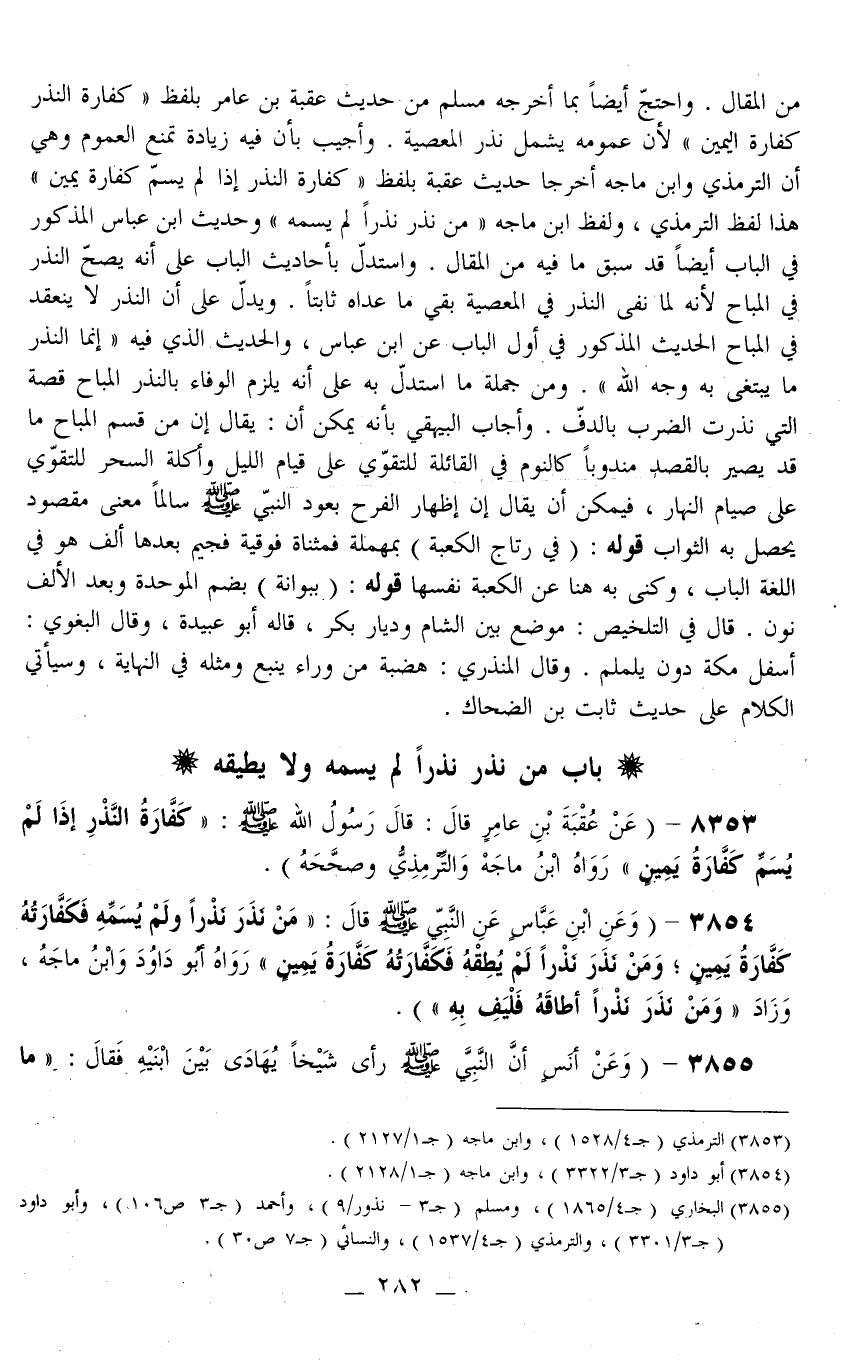 من المقال . واحتجّ أيضاً بما أخرجه مسلم من حديث عقبة بن عامر بلفظ « كفارة النذر
كفارة اليمين » لأن عمومه يشمل نذر المعصية . وأجيب بأن فيه زيادة تمنع العموم وهي
أن الترمذي وابن ماجه أخرجا حديث عقبة بلفظ « كفارة النذر إذا لم يسمّ كفارة يمين »
هذا لفظ الترمذي ، ولفظ ابن ماجه « من نذر نذراً لم يسمه » وحديث ابن عباس المذكور
في الباب أيضاً قد سبق ما فيه من المقال . واستدلّ بأحاديث الباب على أنه يصحّ النذر
في المباح لأنه لما نفى النذر في المعصية بقي ما عداه ثابتاً . ويدلّ على أن النذر لا ينعقد
في المباح الحديث المذكور في أول الباب عن ابن عباس ، والحديث الذي فيه « إنما النذر
ما يبتغى به وجه الله » . ومن جملة ما استدلّ به على أنه يلزم الوفاء بالنذر المباح قصة
التي نذرت الضرب بالدفّ . وأجاب البيهقي بأنه يمكن أن : يقال إن من قسم المباح ما
قد يصير بالقصد مندوباً كالنوم في القائلة للتقوّي على قيام الليل وأكلة السحر للتقوّي
على صيام النهار ، فيمكن أن يقال إن إظهار الفرح بعود النبيّ ﷺ سالماً معنى مقصود
يحصل به الثواب قوله : ( في رتاج الكعبة ) بمهملة فمثناة فوقية فجيم بعدها ألف هو في
اللغة الباب ، وكنى به هنا عن الكعبة نفسها قوله : ( ببوانة ) بضم الموحدة وبعد الألف
نون . قال في التلخيص : موضع بين الشام وديار بكر ، قاله أبو عبيدة ، وقال البغوي :
أسفل مكة دون يلملم . وقال المنذري : هضبة من وراء ينبع ومثله في النهاية ، وسيأتي
الكلام على حديث ثابت بن الضحاك .
❋ باب من نذر نذراً لم يسمه ولا يطيقه ❋
٨٣٥٣ – ( عَنْ عُقْبَةَ بْنِ عامِرٍ قالَ : قالَ رَسُولُ الله ﷺ : « كَفَّارَةُ النَّذْرِ إذَا لَمْ
يُسَمِّ كَفَّارَةُ يَمِينٍ » رَوَاهُ ابْنُ ماجَهْ وَالتِّرْمِذِيُّ وصحَّحَهُ ) .
٣٨٥٤ – ( وَعَنِ ابْنِ عَبَّاسٍ عَنِ النَّبِيّ ﷺ قالَ : « مَنْ نَذَرَ نَذْراً ولَمْ يُسَمِّهِ فَكَفَّارَتُهُ
كَفَّارَةُ يَمِينٍ ؛ وَمَنْ نَذَرَ نَذْراً لَمْ يُطِقْهُ فَكَفَّارَتُهُ كَفَّارَةُ يَمِينٍ » رَوَاهُ أَبُو دَاوُدَ وَابْنُ ماجَهُ ،
وَزَادَ « وَمَنْ نَذَرَ نَذْراً أطاقَهُ فَلْيَفِ بِهِ » ) .
٣٨٥٥ – ( وَعَنْ أنَسٍ أنَّ النَّبِيَّ ﷺ رأى شَيْخاً يُهَادَى بَيْنَ ابْنَيْهِ فَقالَ : « ما
(٣٨٥٣) الترمذي ( جـ٤/١٥٢٨ ) ، وابن ماجه ( جـ١/٢١٢٧ ) .
(٣٨٥٤) أبو داود ( جـ٣/٣٣٢٢ ) ، وابن ماجه ( جـ١/٢١٢٨ ) .
(٣٨٥٥) البخاري ( جـ٤/١٨٦٥ ) ، ومسلم ( جـ٣ – نذور/٩ ) ، وأحمد ( جـ٣ ص١٠٦ ) ، وأبو داود
( جـ٣/٣٣٠١ ) ، والترمذي ( جـ٤/١٥٣٧ ) ، والنسائي ( جـ٧ ص٣٠ ) .
– ٢٨٢ –